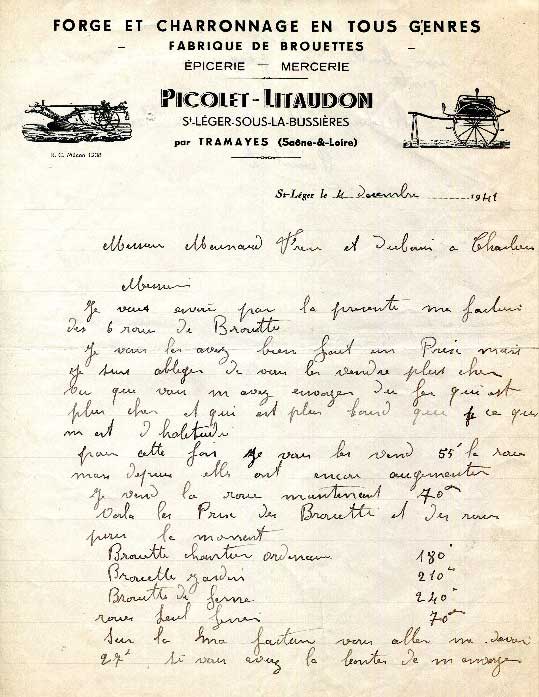 FORGE ET CHARRONNAGE EN TOUS GENRES
- FABRIQUE DE BROUETTES -
ÉPICERIE — MERCERIE
PICOLET-LITAUDON
St-LÉGER-SOUS-LA-BUSSIÈRES
par TRAMAYES (Saône-&-Loire)
R. C. Mâcon 1238
St-Léger le 4 decembre 1941
Messieu Meunaud et a
Messieu
Je vous envoie par la presente ma facture
des 6 roue de Brouette
Je vous les avez bien fait un Prise mais
je suis obliger de vous les vendre plus cher
vu que vous m avez envoyer du fer qui est
plus cher et qui est plus lourd que ce que
m est d habitude
pour cette fois je vous les vend 55 la roue
mais depuis elle ont encor augmenter
Je vend la roue maintenant 70
Voila les Prise des Brouette et des roues
pour le moment
Brouette chantier ordinaire 180
Brouette jardin 210
Brouette de ferme 240
roues seul ferrer 70
Sur la ma facture vous aller me devoir
27 si vous avez la bontes de m envoyer